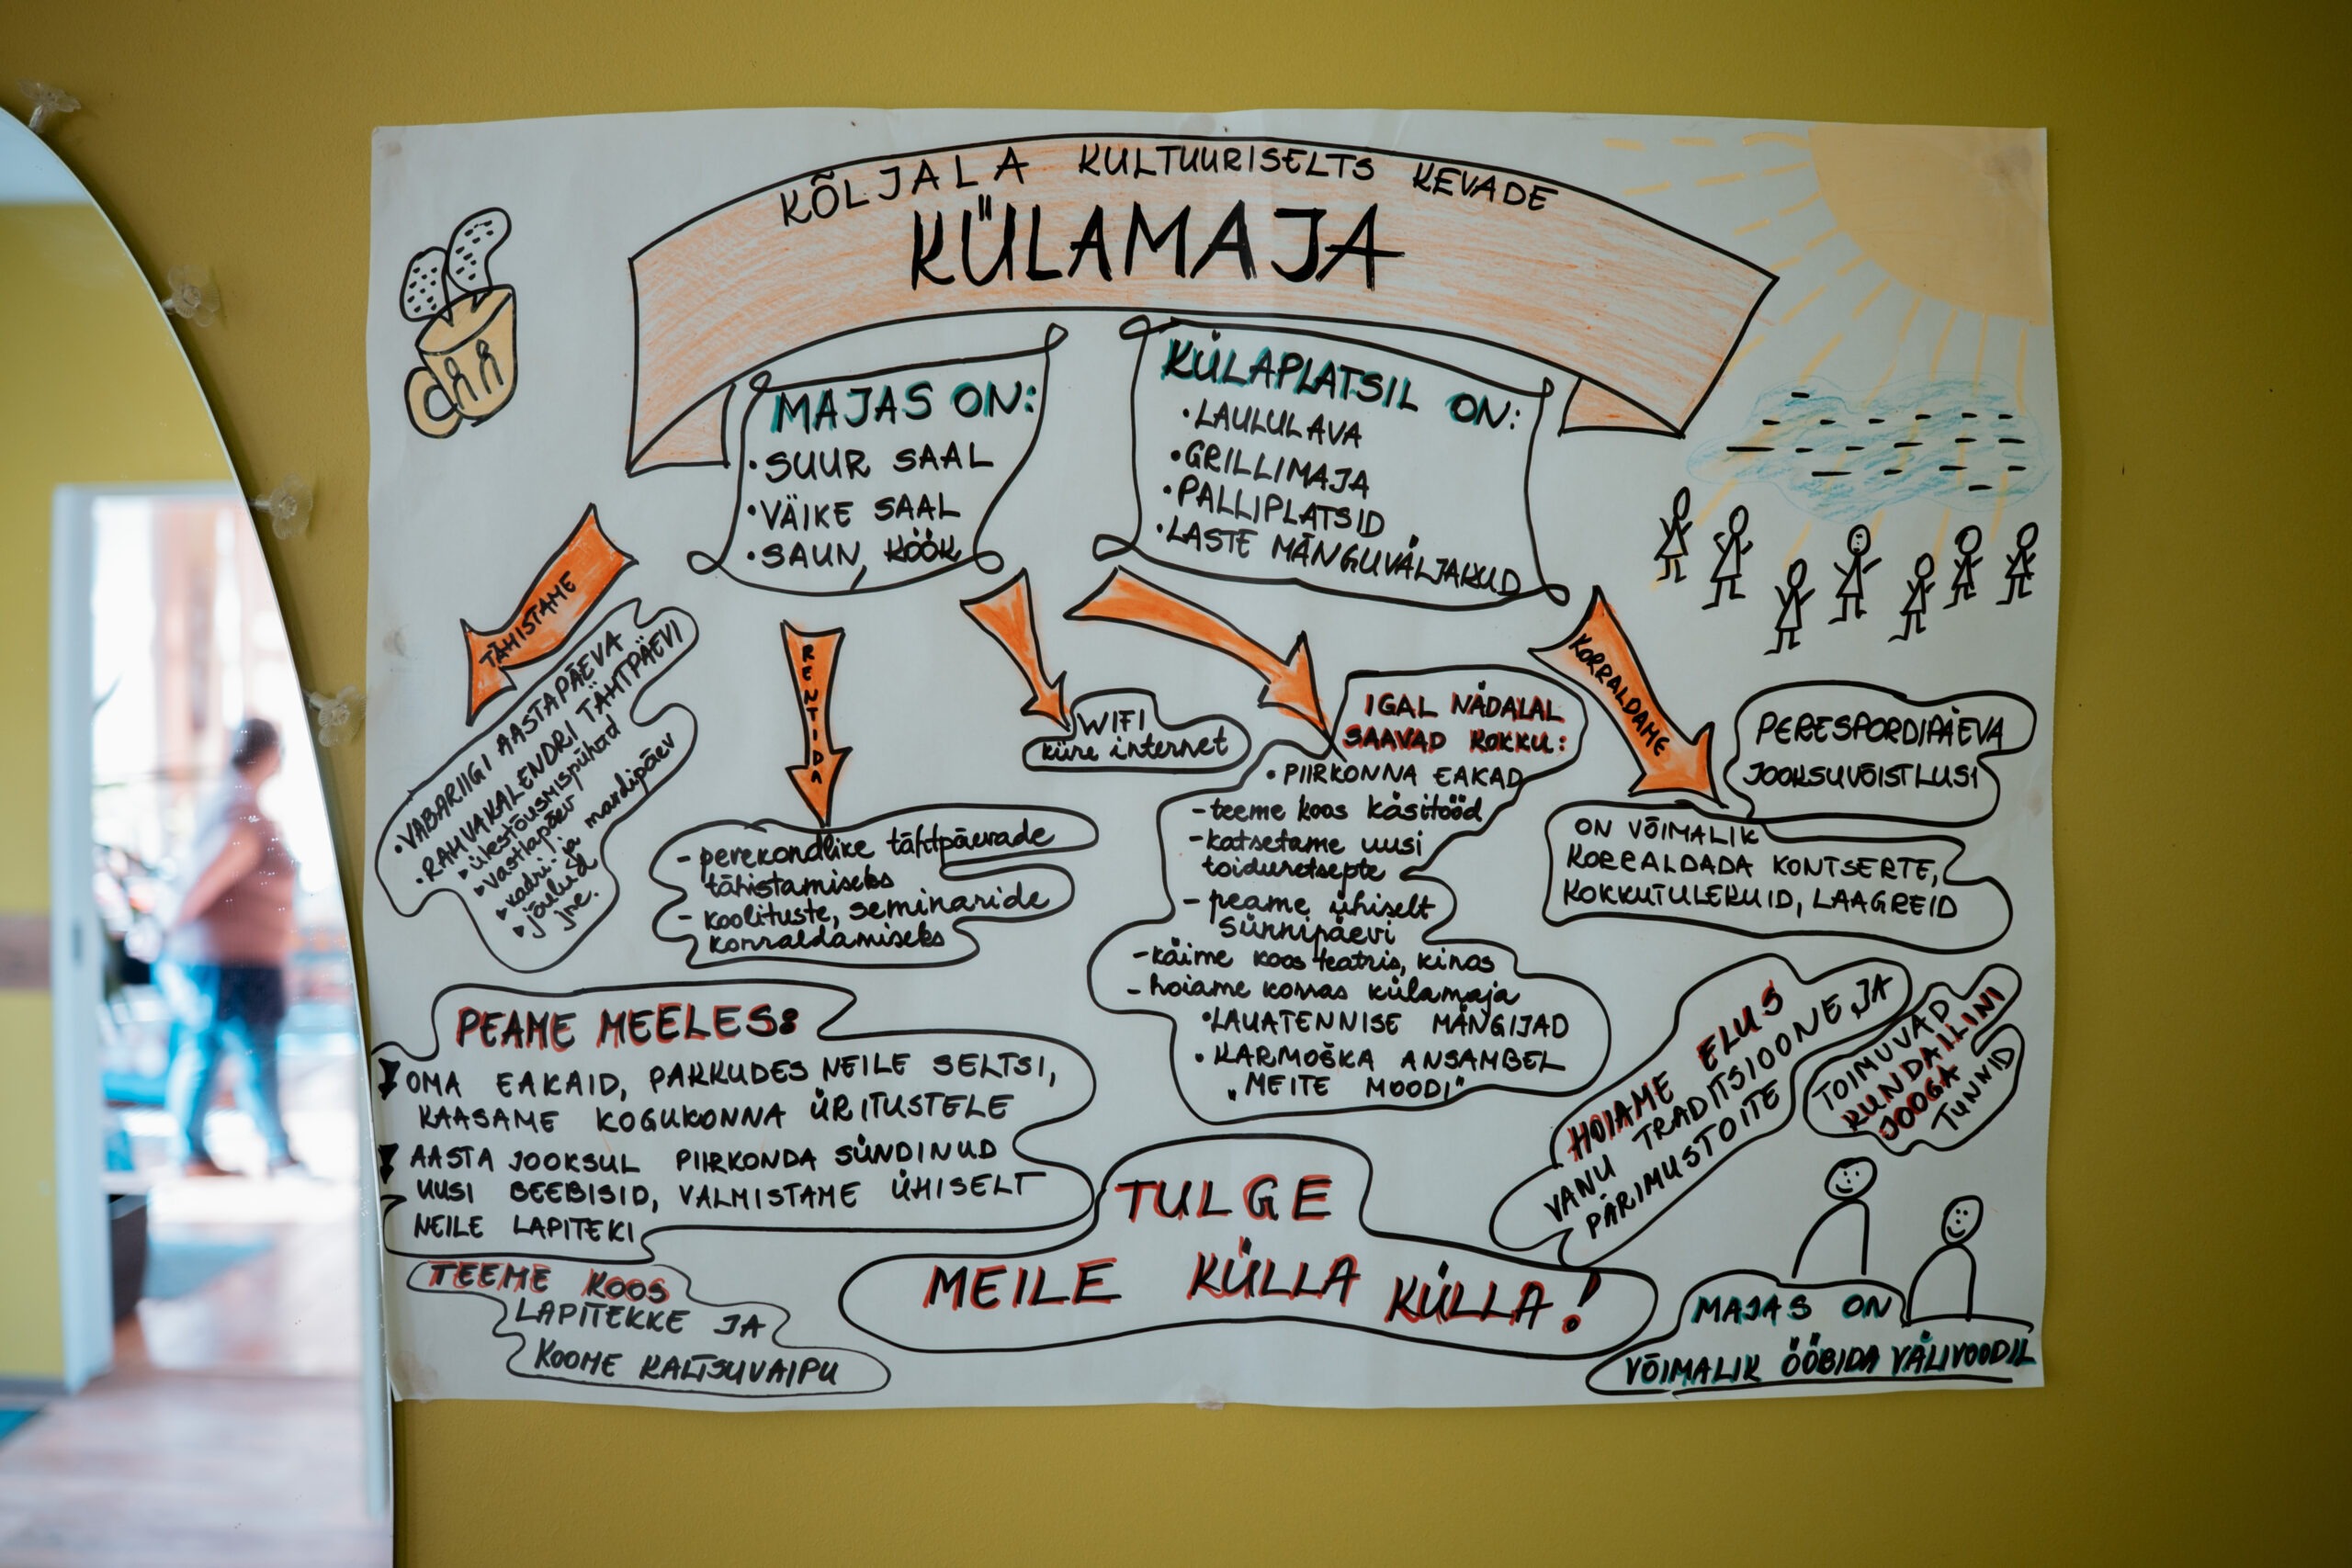 KÕLJALA KULTUURISELTS KEVADE
KÜLAMAJA
MAJAS ON:
• SUUR SAAL
• VÄIKE SAAL
• SAUN, KÖÖK
KÜLAPLATSIL ON:
• LAULULAVA
• GRILLIMAJA
• PALLIPLATSID
• LASTE MÄNGUVÄLJAKUD
TÄHISTAME
• VABARIIGI AASTAPÄEVA
• RAHVAKALENDRI TÄHTPÄEVI
ülestõusmispühad
vastlapäev
kadri- ja mardipäev
jõulud
jne.
RENTIDA
- perekondlike tähtpäevade
tähistamiseks
- koolituste, seminaride
korraldamiseks
WIFI
kiire internet
IGAL NÄDALAL
SAAVAD KOKKU:
• PIIRKONNA EAKAD
- teeme koos käsitööd
- katsetame uusi
toiduretsepte
- peame ühiselt
sünnipäevi
- käime koos teatris, kinos
- hoiame korras külamaja
• LAUATENNISE MÄNGIJAD
• KARMOŠKA ANSAMBEL
„MEITE MOODI"
KORRALDAME
PERESPORDIPÄEVA
JOOKSUVÕISTLUSI
ON VÕIMALIK
KORRALDADA KONTSERTE,
KOKKUTULEKUID, LAAGREID
PEAME MEELES:
OMA EAKAID, PAKKUDES NEILE SELTSI,
KAASAME KOGUKONNA ÜRITUSTELE
AASTA JOOKSUL PIIRKONDA SÜNDINUD
UUSI BEEBISID, VALMISTAME ÜHISELT
NEILE LAPITEKI
TEEME KOOS
LAPITEKKE JA
KOOME KALTSUVAIPU
TULGE
MEILE KÜLLA KÜLLA!
HOIAME ELUS
VANU TRADITSIOONE JA
PÄRIMUSTOITE
TOIMUVAD
KUNDALIINI
JOOGA
TUNNID
MAJAS ON
VÕIMALIK ÖÖBIDA VÄLIVOODIL